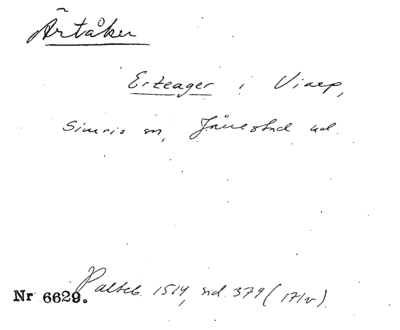 Ärtåker
Erteager i Viarp,
Simris sn, Järrestad hd.
Palteb. 1514, sid. 379 (171v).
Nr 6629.